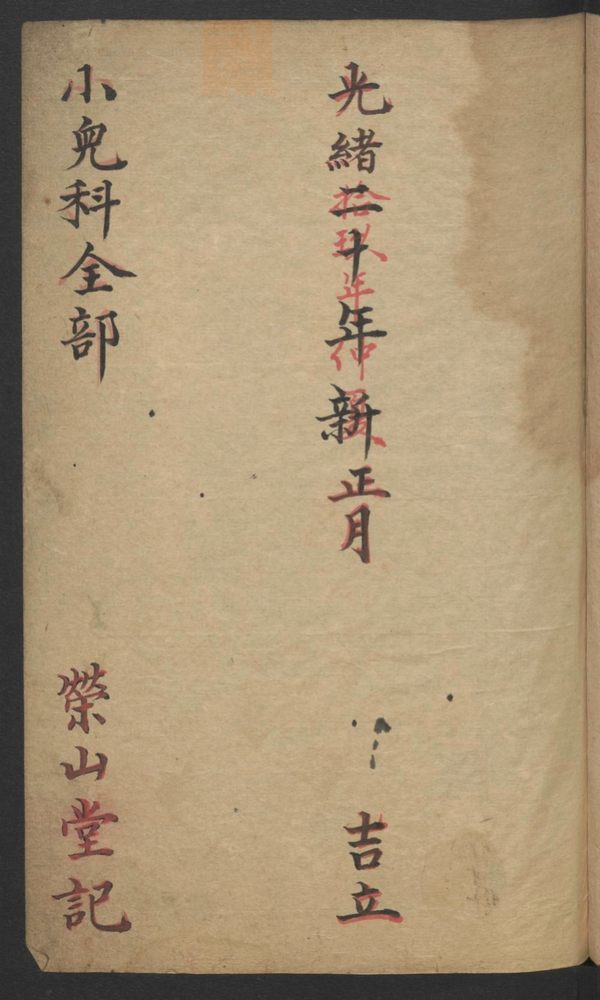 光緒二十年新正月 吉立
拾玖年仲
小兒科全部 榮山堂記